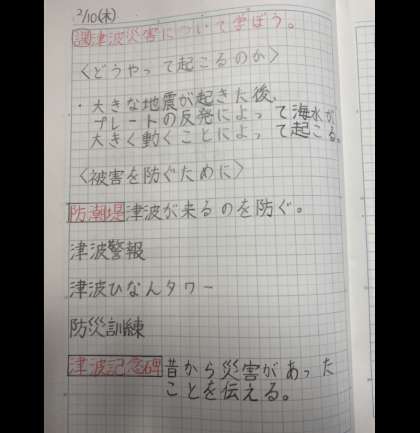 2/10(木)
調津波災害について学ぼう。
〈どうやって起こるのか〉
・大きな地震が起きた後、
プレートの反発によって海水が
大きく動くことによって起こる。
〈被害を防ぐために〉
防潮堤 津波が来るのを防ぐ。
津波警報
津波ひなんタワー
防災訓練
津波記念碑 昔から災害があった
ことを伝える。